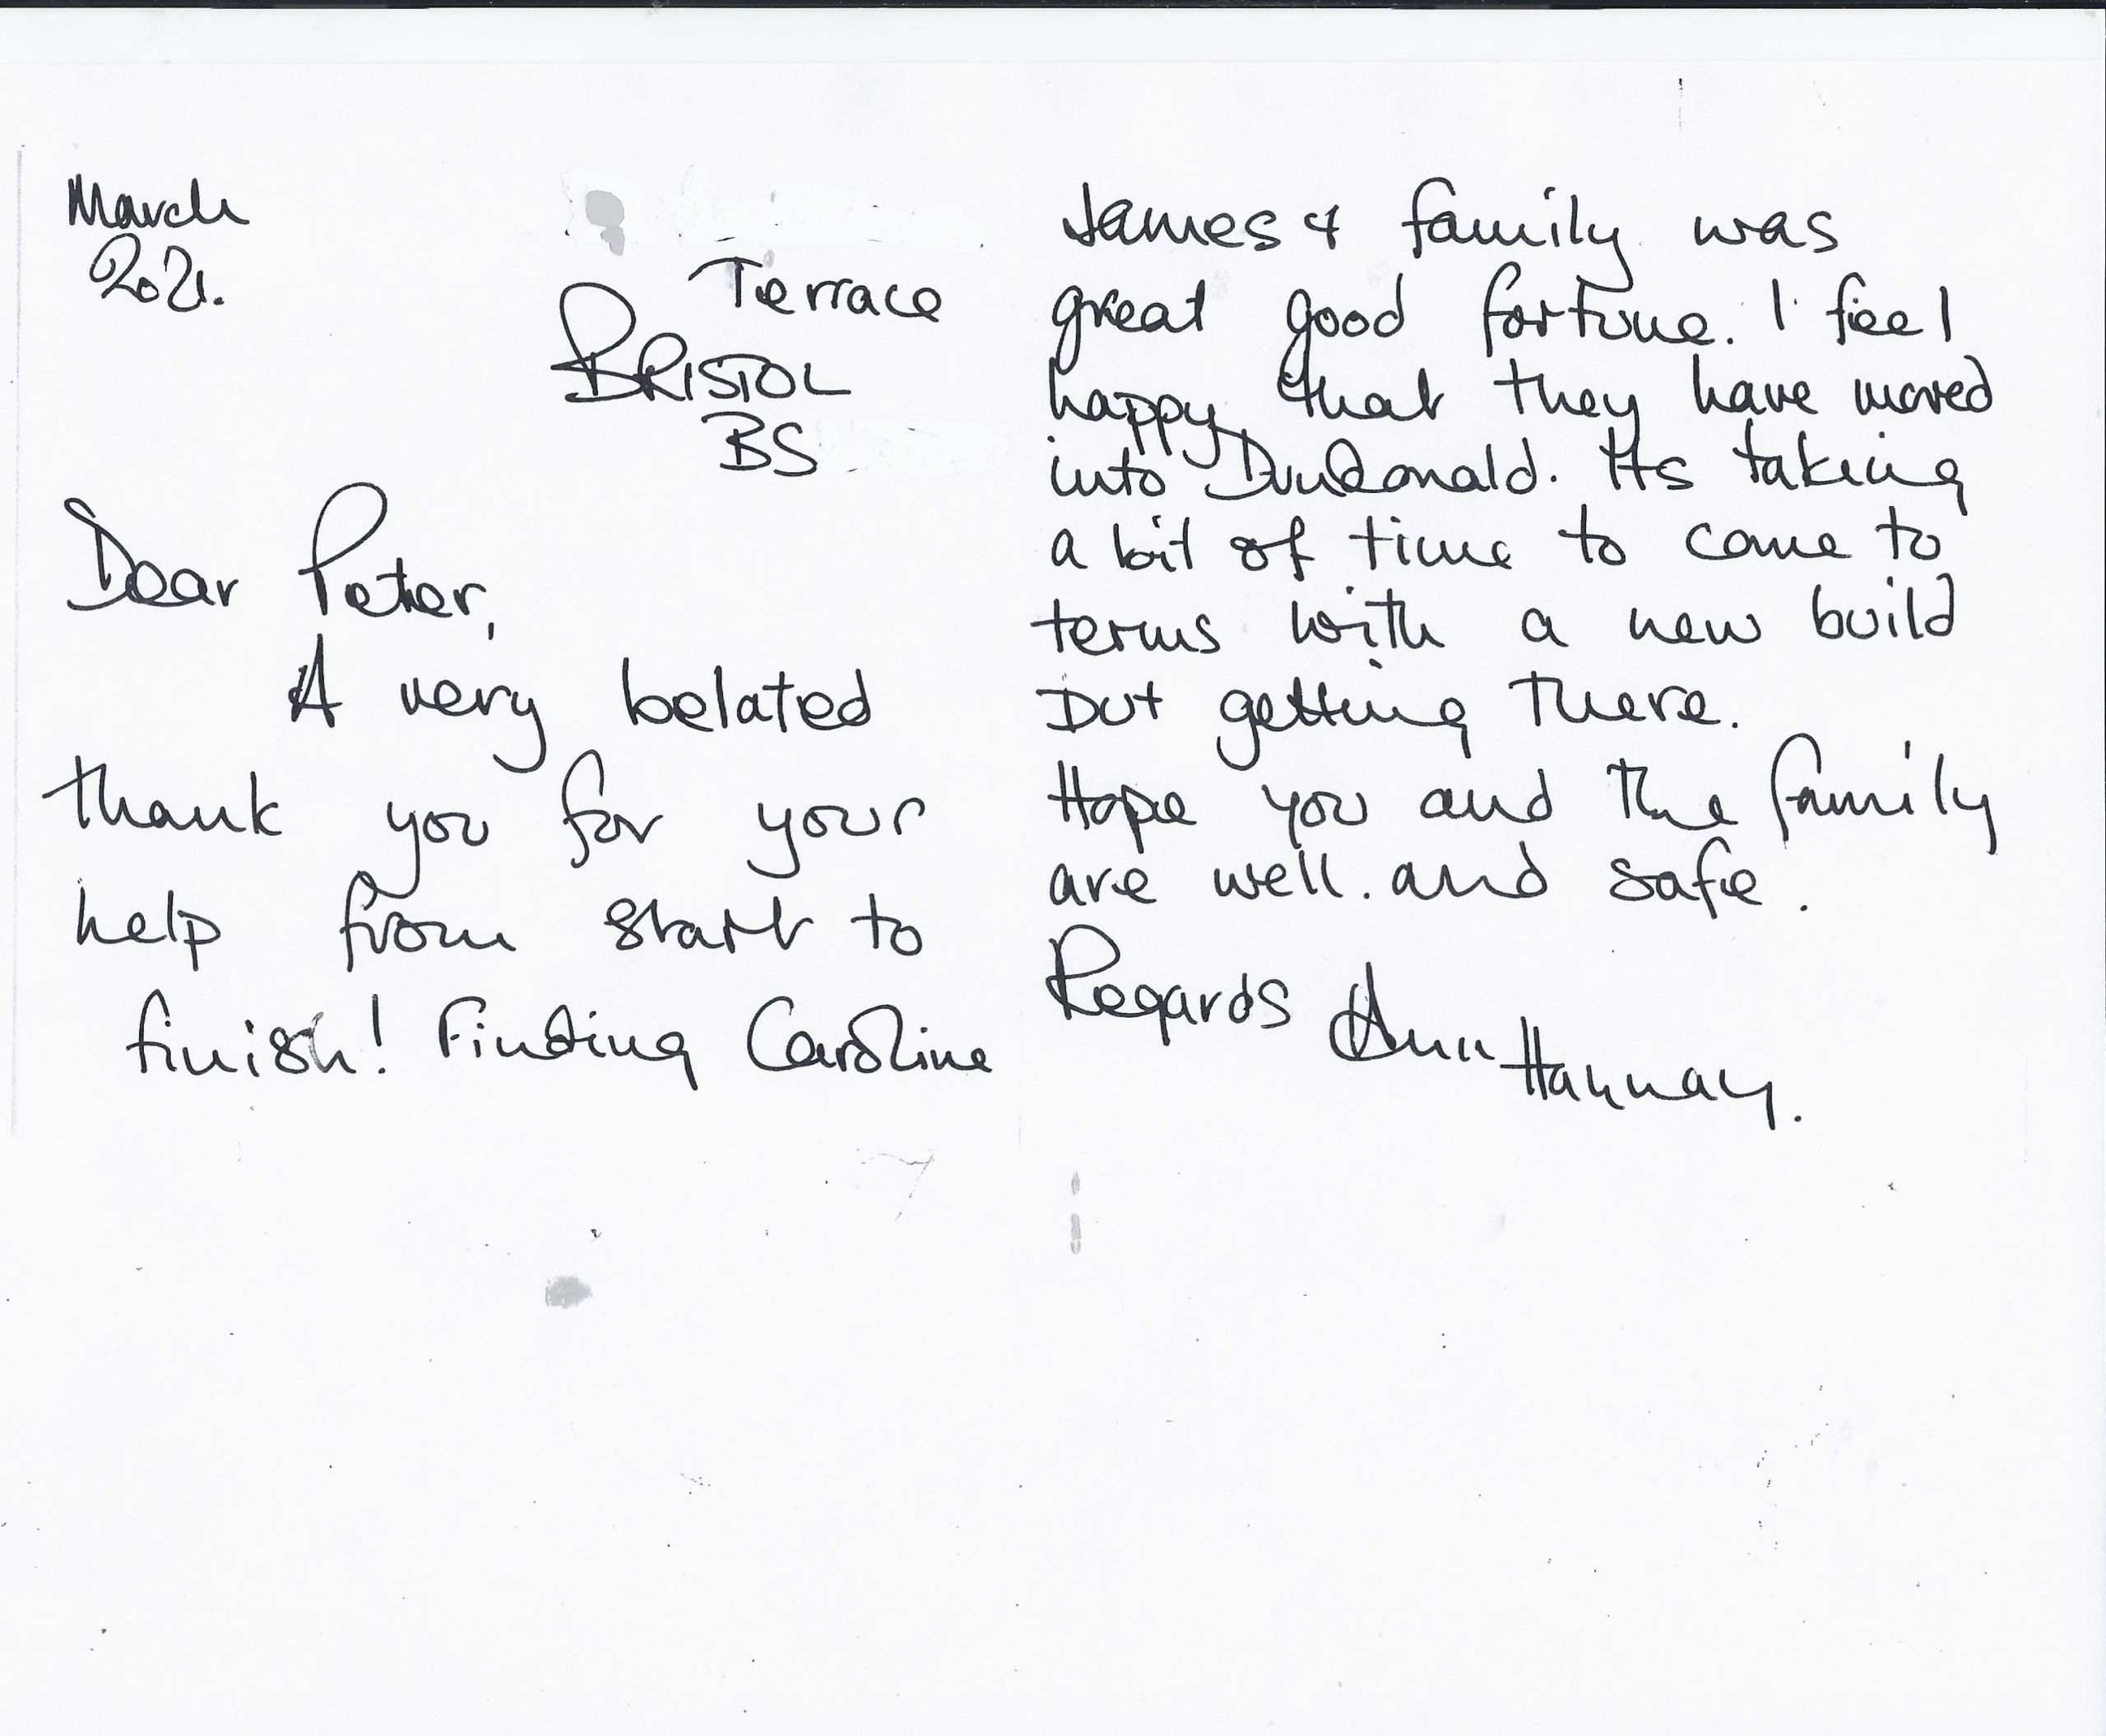 March
2021.
Terrace
BRISTOL
BS
Dear Peter,
A very belated
thank you for your
help from start to
finish! Finding Caroline
James & family was
great good fortune. I feel
happy that they have moved
into Dundonald. Its taking
a bit of time to come to
terms with a new build
but getting there.
Hope you and the family
are well. and safe.
Regards Ann
Hannay.